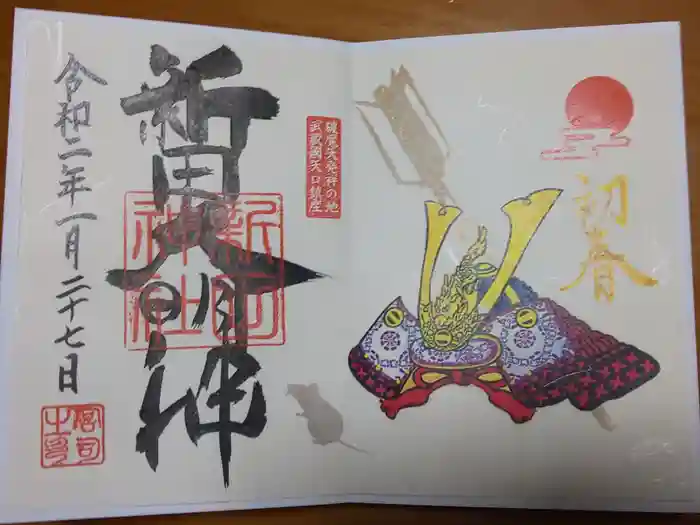 初春
破魔矢発祥の地
武蔵國矢口鎮座
新田大明神
新田神社
令和二年一月二十七日
宮司之印